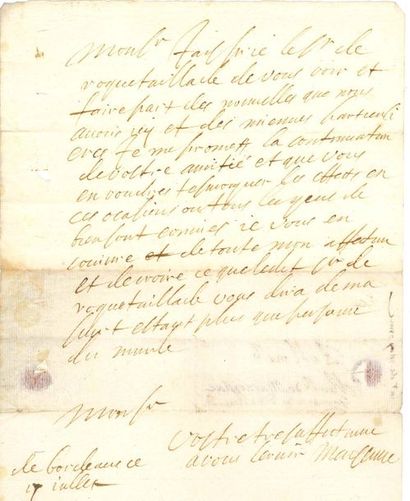 Monsr Jais prie le Sr de
roquetaillade de vous voir et
faire part des nouvelles que nous
avons yy et des miennes
Je me promest la continuation
de vostre amitié et que vous
en voudres tesmogner les effets en
ces ocasions ou tous les gens de
bien sont je vous en
et de toute mon affection
et de croire ce que ledit Sr de
roquetaillade vous dira de ma
part estant plus que personne
du monde
Monsr
vostre tres affectionne
a vous servir
de bordeaux ce
17 juillet